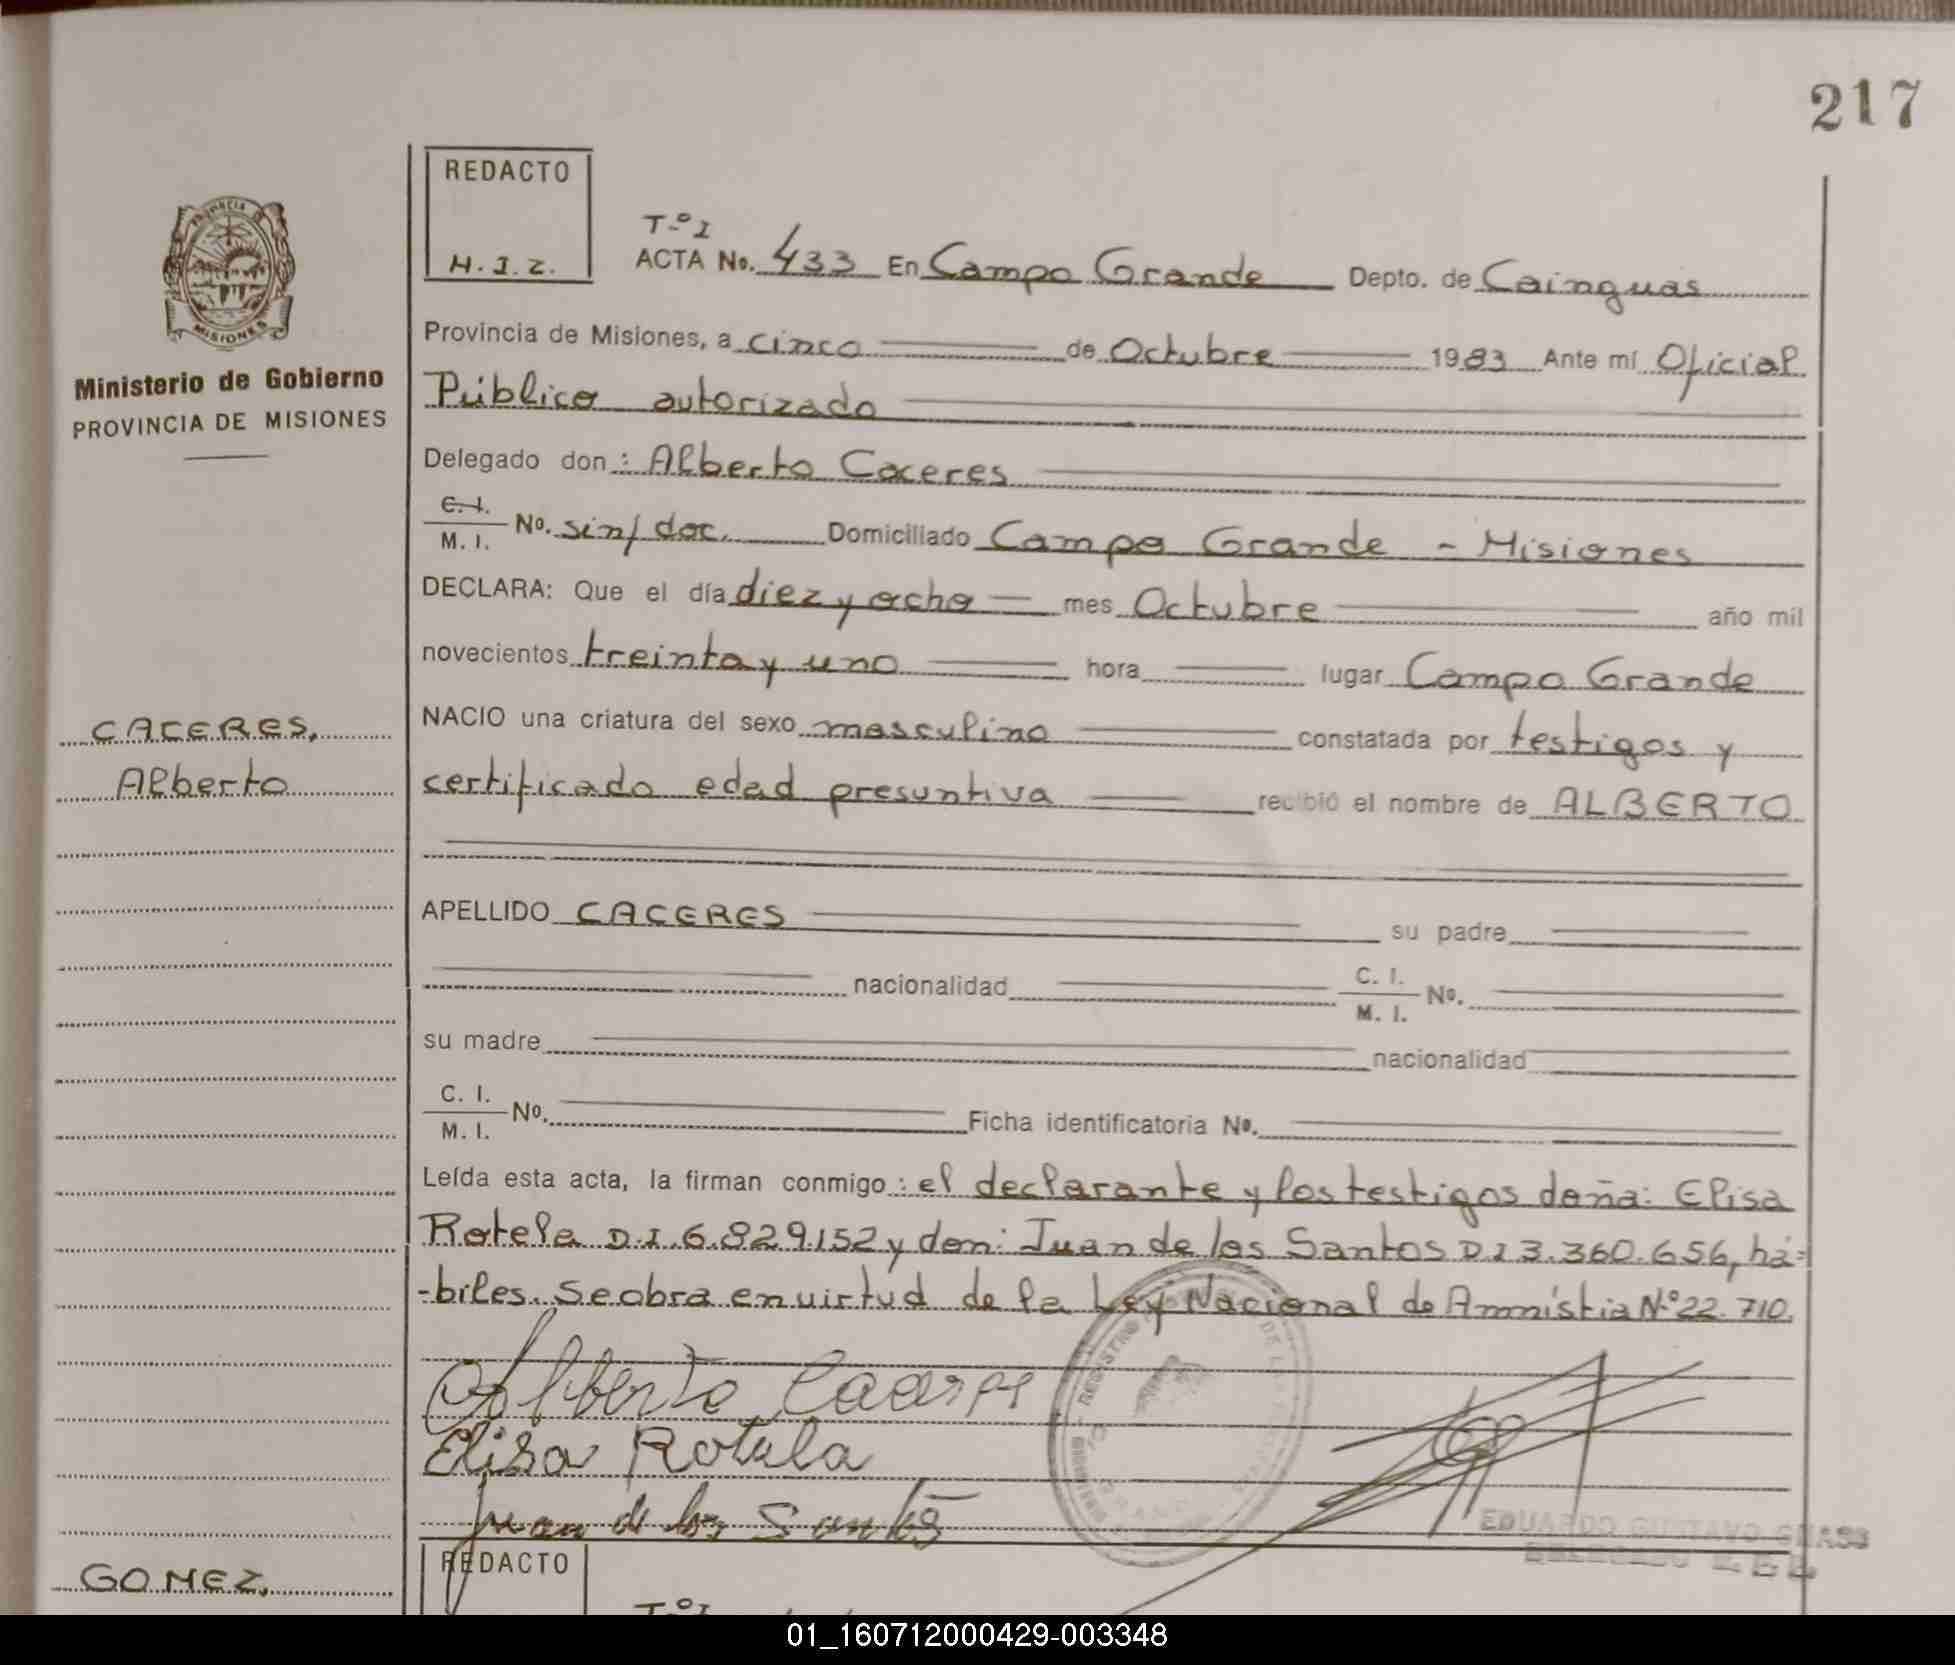 217
REDACTO
H.J.Z.
T-º I
ACTA No. 433 En Campo Grande Depto. de Cainguás
Provincia de Misiones, a cinco de Octubre 1983 Ante mí Oficial
Público autorizado
Delegado don: Alberto Caceres
C. I. / M. I. No. sin/doc. Domiciliado Campo Grande - Misiones
DECLARA: Que el día diez y ocho mes Octubre año mil
novecientos treinta y uno hora lugar Campo Grande
NACIO una criatura del sexo masculino constatada por testigos y
certificado edad presuntiva recibió el nombre de ALBERTO
APELLIDO CACERES su padre
nacionalidad C. I. / M. I. No.
su madre nacionalidad
C. I. / M. I. No. Ficha identificatoria No.
Leída esta acta, la firman conmigo: el declarante y los testigos doña: Elisa
Rotela D.I. 6.829.152 y don: Juan de los Santos D I 3.360.656, há=
-biles. Se obra en virtud de la Ley Nacional de Amnistia N.º 22.710.
Alberto Caceres
Elisa Rotela
Juan de los Santos
EDUARDO GUSTAVO
DELEGADO
PROVINCIA DE
MISIONES
Ministerio de Gobierno
PROVINCIA DE MISIONES
CACERES,
Alberto
GOMEZ,
REDACTO
T-º I
01_160712000429-003348